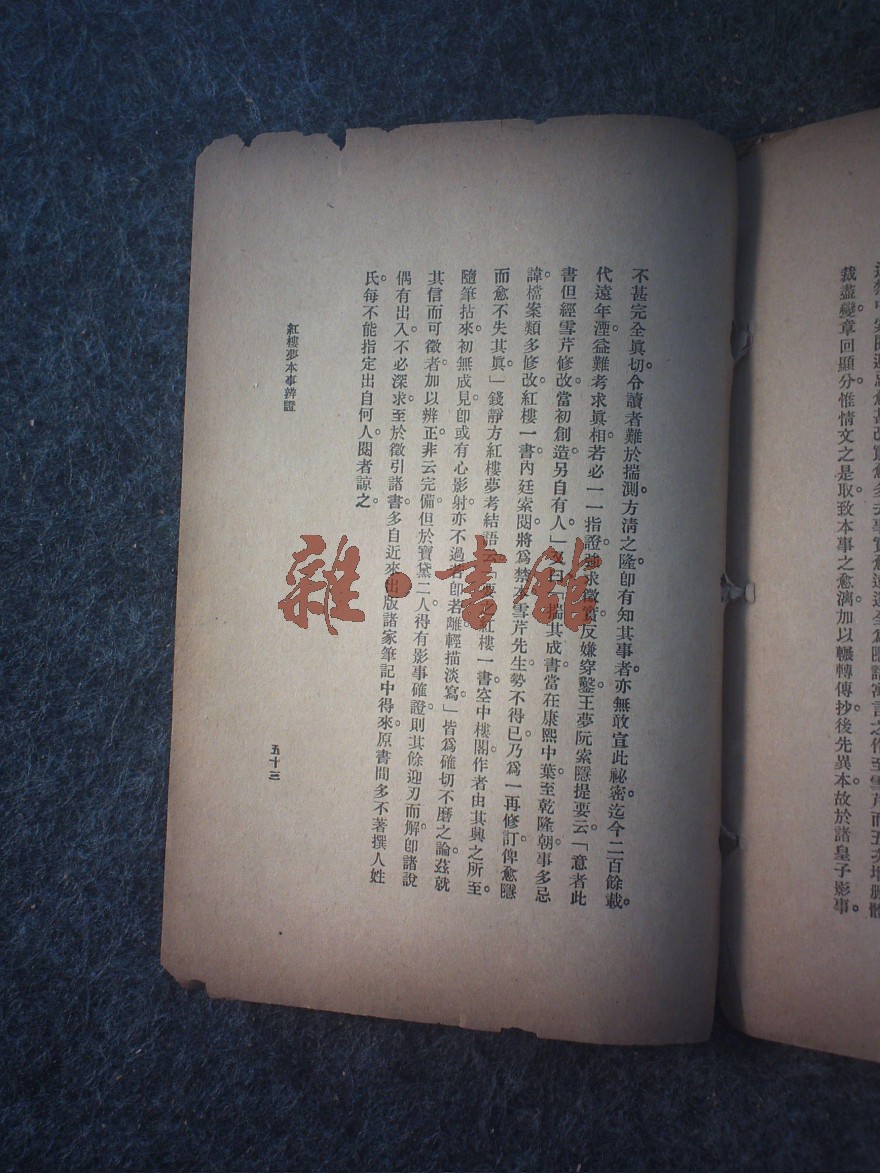 裁盡變章回顯分惟情文之是取致本事之愈漓加以輾轉傳抄後先異本故於諸皇子影事
不甚完全眞切令讀者難於揣測方淸之隆卽有知其事者亦無敢宣此祕密迄今二百餘載。
代遠年湮益難考求眞相若必一一指證強求徵實反嫌穿鑿王夢阮索隱提要云。「意者此
書但經雪芹修改當初創造另自有人。」又曰「揣其成書當在康熙中葉至乾隆朝事多忌
諱。檔案類多修改。紅樓一書內廷索閱將爲禁本雪芹先生勢不得已乃爲一再修訂俾愈隱
而愈不失其眞。」錢靜方紅樓夢考結語云。「要之紅樓一書空中樓閣作者由其興之所至。
隨筆拈來。初無成見卽或有心影射亦不過若卽若離輕描淡寫」皆爲確切不磨之論茲就
其信而可徵者加以辨正非云完備但於寶黛二人得有影事確證則其餘迎刃而解。卽諸說
偶有出入。不必深求。至於徵引諸書多自近來出版諸家筆記中得來。原書間多不著撰人姓
氏。每不能指定出自何人。閱者諒之。
紅樓夢本事辨證
五十三
雜·書館